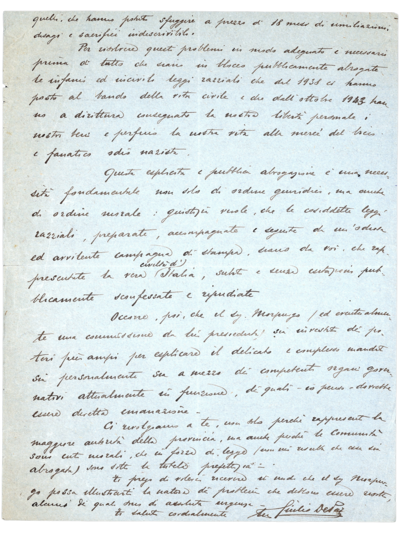 quelli, che hanno potuto sfuggire a prezzo di 18 mesi di umiliazioni,
disagi e sacrifici indescrivibili.
Per risolvere questi problemi in modo adeguato è necessario
prima di tutto che siano in blocco pubblicamente abrogate
le infami ed incivili leggi razziali che dal 1938 ci hanno
posto al bando della vita civile e che dall'ottobre 1943 han
no a dirittura consegnato la nostra libertà personale i
nostri beni e perfino la nostra vita alla mercé del bieco
e fanatico odio nazista.
Questa esplicita e pubblica abrogazione è una neces
sità fondamentale non solo di ordine giuridico, ma anche
di ordine morale: giustizia vuole, che le cosiddette leggi
razziali, preparate, accompagnate e seguite da un'odiosa
ed avvilente campagna di stampa, siano da voi, che rap
presentate la vera civiltà d'Italia, subito e senza esitazioni pub
blicamente sconfessate e ripudiate
Occorre, poi, che el sig. Morpurgo (ed eventualmen
te una commissione da lui presieduta) sia investito di po
teri più ampi per esplicare il delicato e complesso mandato
sia personalmente sia a mezzo di competenti organi gover
nativi attualmente in funzione, di quali - io penso - dovrebbe
essere diretta emanazione.
Ci rivolgiamo a te, non solo perché rappresenti la
maggiore autorità della provincia, ma anche perché le Comunità
sono enti morali, che in forza di legge (non mi risulta che sia sta
abrogata) sono sotto la tutela prefettizia =
ti prego di volerci ricevere in modo che el sig Morpur
go possa illustrarti la natura dei problemi che debbono essere risolti,
alcuni di quali sono di assoluta urgenza -
ti saluto cordialmente Giulio